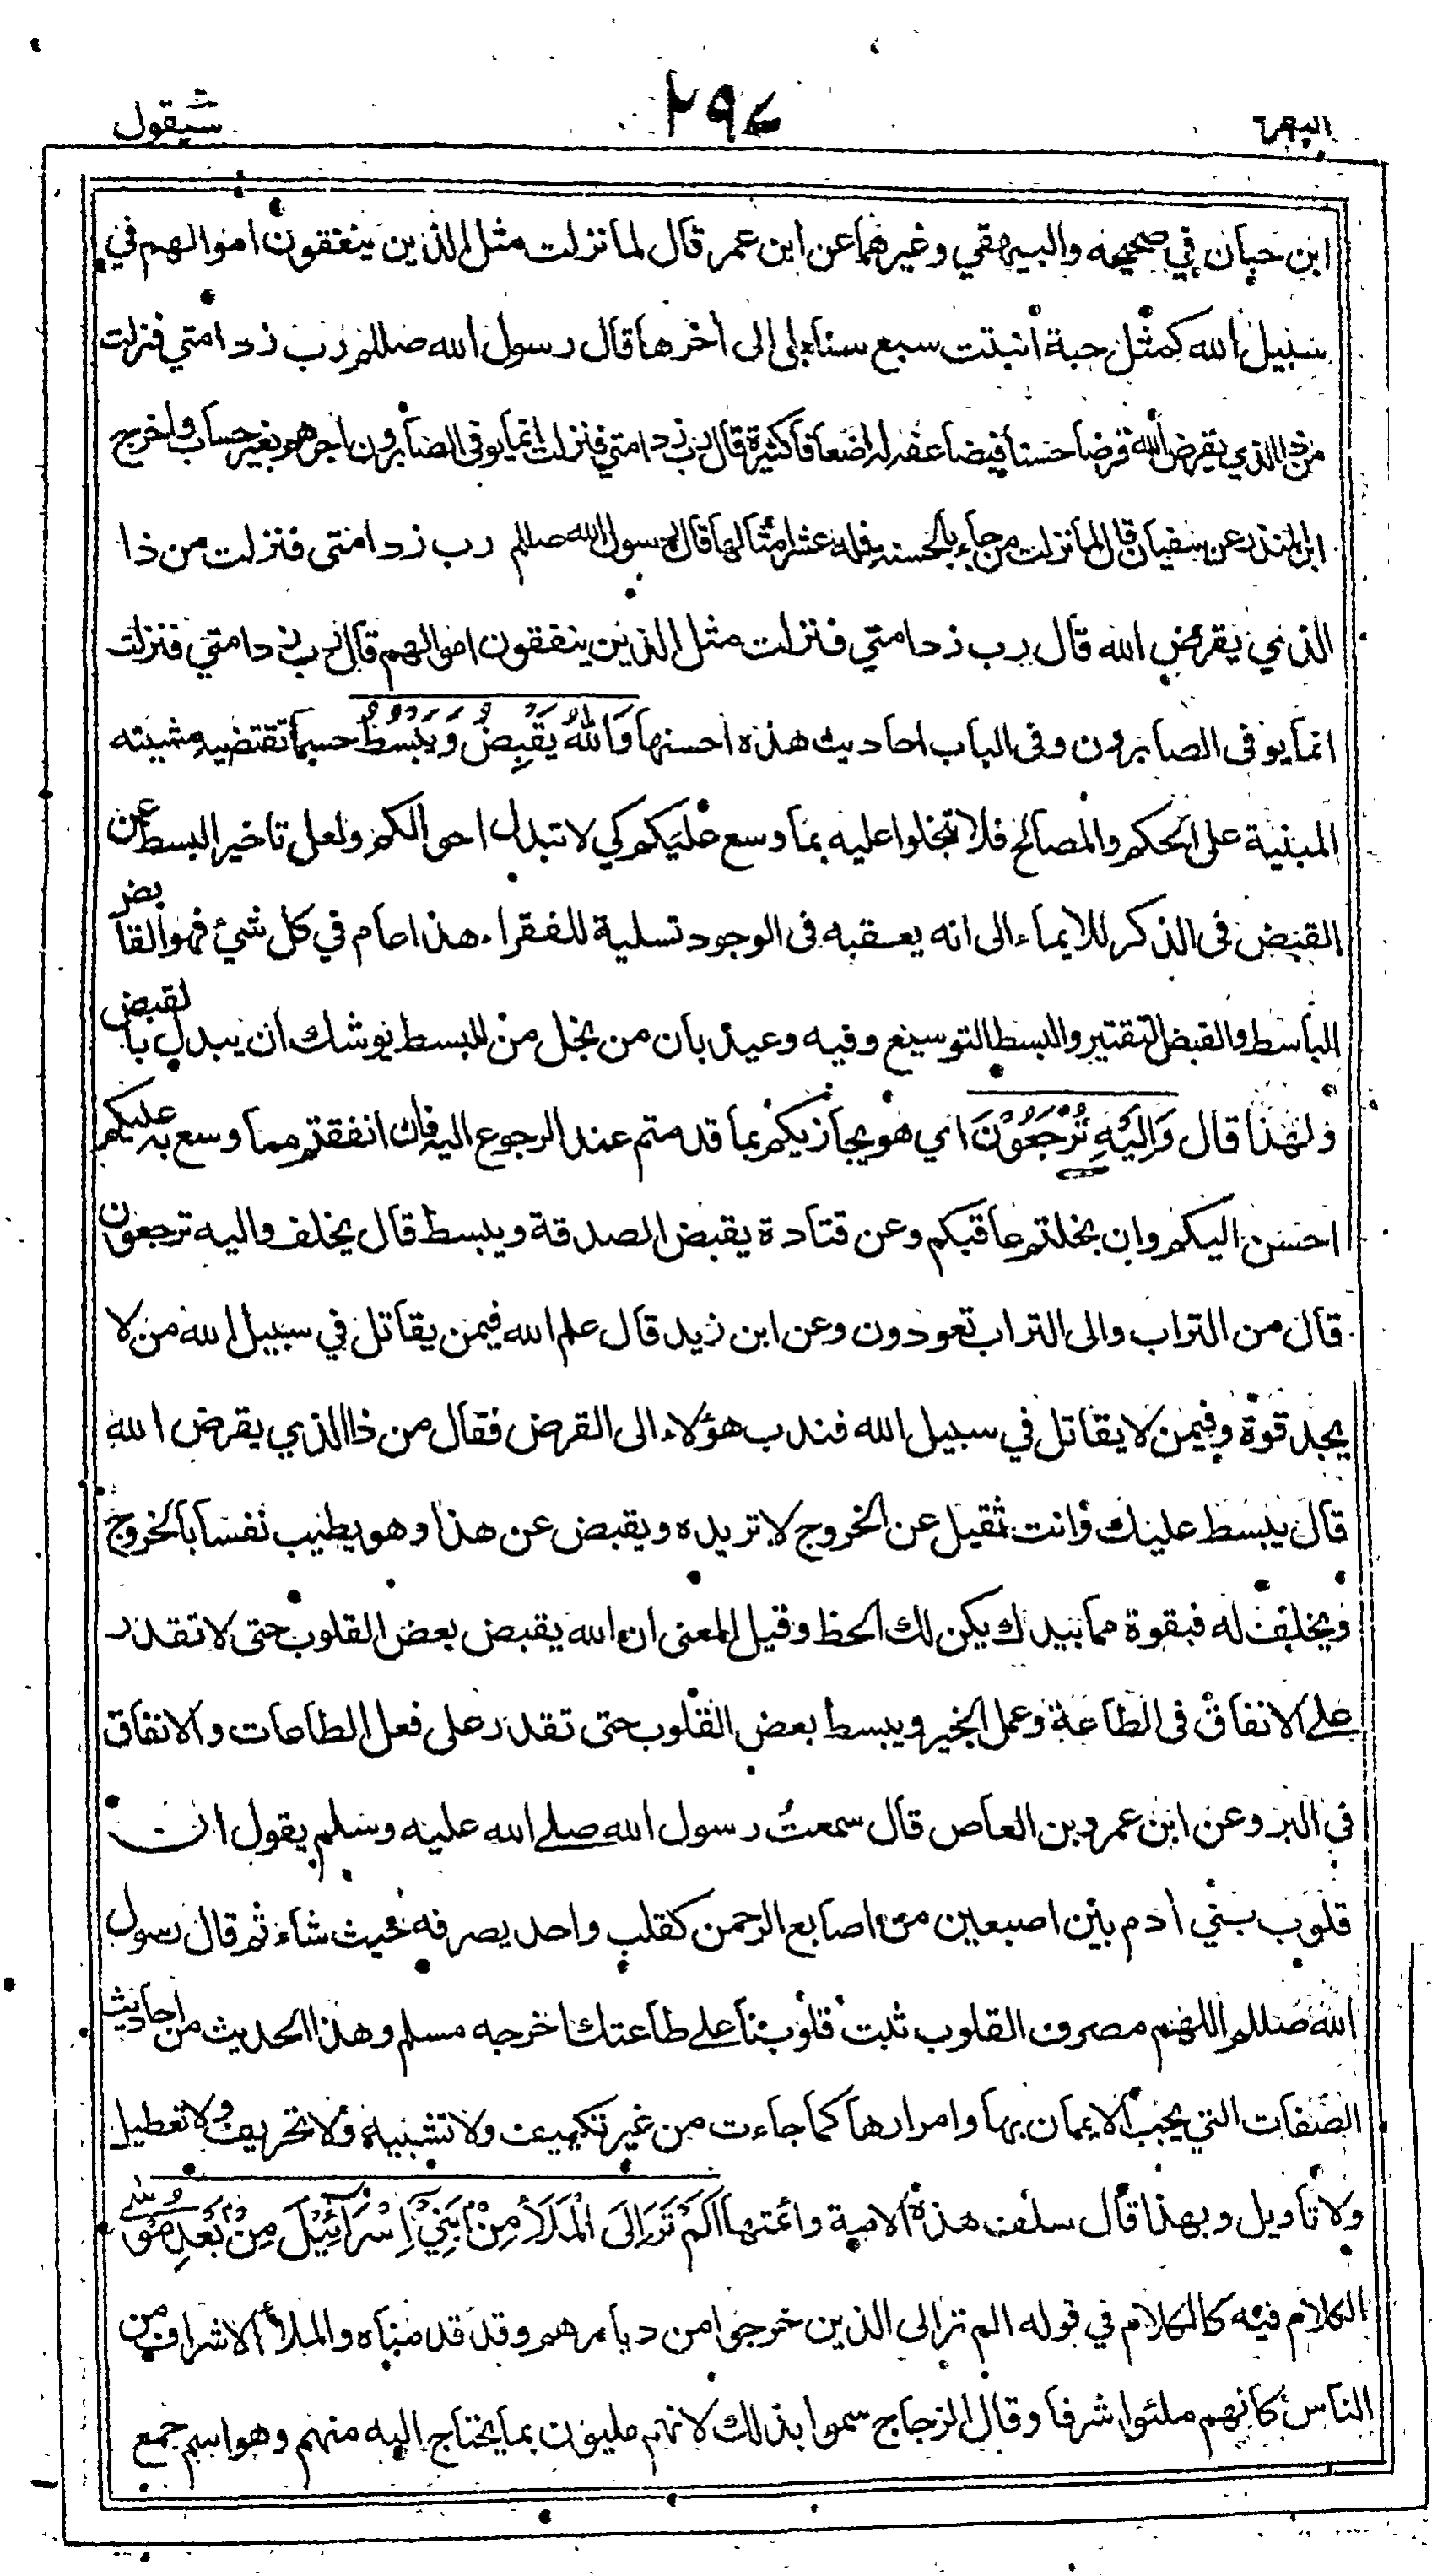 البقرة ٢٩٤ سيقول
ابن حبان في صحيحه والبيهقي وغيرهما عن ابن عمر قال لما نزلت مثل الذين ينفقون اموالهم في
سبيل الله كمثل حبة انبتت سبع سنابل الى اخرها قال رسول الله صللم رب زد امتي فنزلت
من ذا الذي يقرض الله قرضا حسنا فيضاعفه له اضعافا كثيرة قال رب زد امتي فنزلت انما يوفى الصابرون اجرهم بغير حساب واخرج
ابن المنذر عن سفيان قال لما نزلت من جاء بالحسنة فله عشر امثالها قال رسول الله صللم رب زد امتي فنزلت من ذا
الذي يقرض الله قال رب زد امتي فنزلت مثل الذين ينفقون اموالهم قال رب زد امتي فنزلت
انما يوفى الصابرون وفى الباب احاديث هذه احسنها وَاللهُ يَقْبِضُ وَيَبْسُطُ حسبما تقتضيه مشيئته
المبنية على الحكم والمصالح فلا تبخلوا عليه بما وسع عليكم كي لا تبدل احوالكم ولعل تاخير البسط عن
القبض فى الذكر للايماء الى انه يعقبه فى الوجود تسلية للفقراء هذا عام في كل شيء فهو القابض
الباسط والقبض التقتير والبسط التوسيع وفيه وعيد بان من بخل من البسط يوشك ان يبدل بالقبض
ولهذا قال وَاِلَيْهِ تُرْجَعُوْنَ اي هو يجازيكم بما قدمتم عند الرجوع اليه فان انفقتم مما وسع به عليكم
احسن اليكم وان بخلتم عاقبكم وعن قتادة يقبض الصدقة ويبسط قال يخلف واليه ترجعون
قال من التراب والى التراب تعودون وعن ابن زيد قال علم الله فيمن يقاتل في سبيل الله من لا
يجد قوة وفيمن لا يقاتل في سبيل الله فندب هؤلاء الى القرض فقال من ذا الذي يقرض الله
قال يبسط عليك وانت ثقيل عن الخروج لا تريده ويقبض عن هذا وهو يطيب نفسا بالخروج
ويخلف له فبقوة مما بيدك يكن لك الحظ وقيل المعنى ان الله يقبض بعض القلوب حتى لا تقدر
على الانفاق فى الطاعة وعمل الخير ويبسط بعض القلوب حتى تقدر على فعل الطاعات والانفاق
في البر وعن ابن عمرو بن العاص قال سمعت رسول الله صلے الله عليه وسلم يقول ان
قلوب بني ادم بين اصبعين من اصابع الرحمن كقلب واحد يصرفه حيث شاء ثم قال رسول
الله صللم اللهم مصرف القلوب ثبت قلوبنا على طاعتك اخرجه مسلم وهذا الحديث من احاديث
الصفات التي يجب الايمان بها وامرارها كما جاءت من غير تكييف ولا تشبيه ولا تحريف ولا تعطيل
ولا تاويل وبهذا قال سلف هذه الامة وائمتها اَلَمْ تَرَ اِلَى الْمَلَأِ مِنْ بَنِيْ اِسْرَآئِيْلَ مِنْ بَعْدِ مُوْسٰے
الكلام فيه كالكلام في قوله الم تر الى الذين خرجوا من ديارهم وقد قدمناه والملأ الاشراف من
الناس كانهم ملئوا شرفا وقال الزجاج سموا بذلك لانهم مليون بما يحتاج اليه منهم وهو اسم جمع